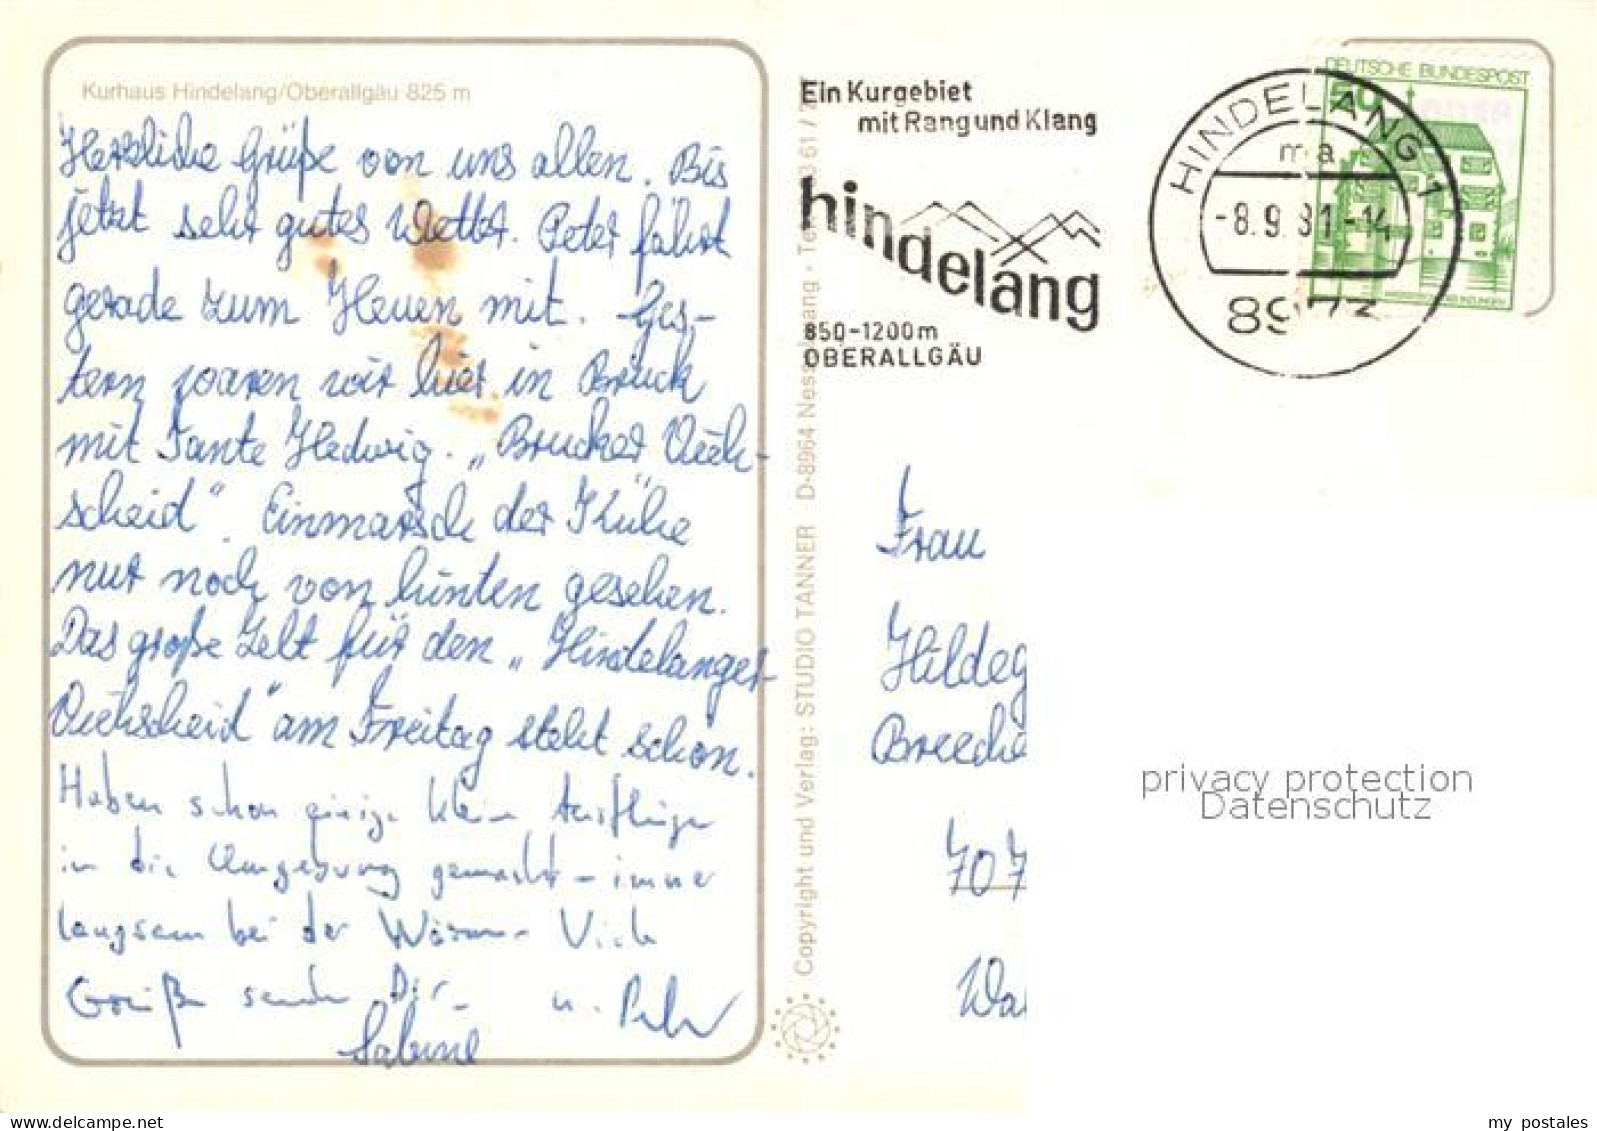 Kurhaus Hindelang/Oberallgäu 825 m
Herzliche Grüße von uns allen. Bis
jetzt sehr gutes Wetter. Peter fährt
gerade zum Heuen mit. Ges-
tern waren wir hier in Bruck
mit Tante Hedwig. „Brucker Vieh-
scheid“. Einmarsch der Kühe
nur noch von hinten gesehen.
Das große Zelt für den „Hindelanger-
Viehscheid“ am Freitag steht schon.
Haben schon einige kleine Ausflüge
in die Umgebung gemacht – immer
langsam bei der Wärme. Viele
Grüße senden Dir
Sabine u. Peter
Copyright und Verlag: STUDIO TANNER D-8964 Ness ang · Te 3 61 /
Ein Kurgebiet
mit Rang und Klang
hindelang
850-1200m
OBERALLGÄU
HINDELANG 1
ma
-8.9.81-14
8973
DEUTSCHE BUNDESPOST
Frau
Hildeg
Breeche
707
Wa
privacy protection
Datenschutz
my postales